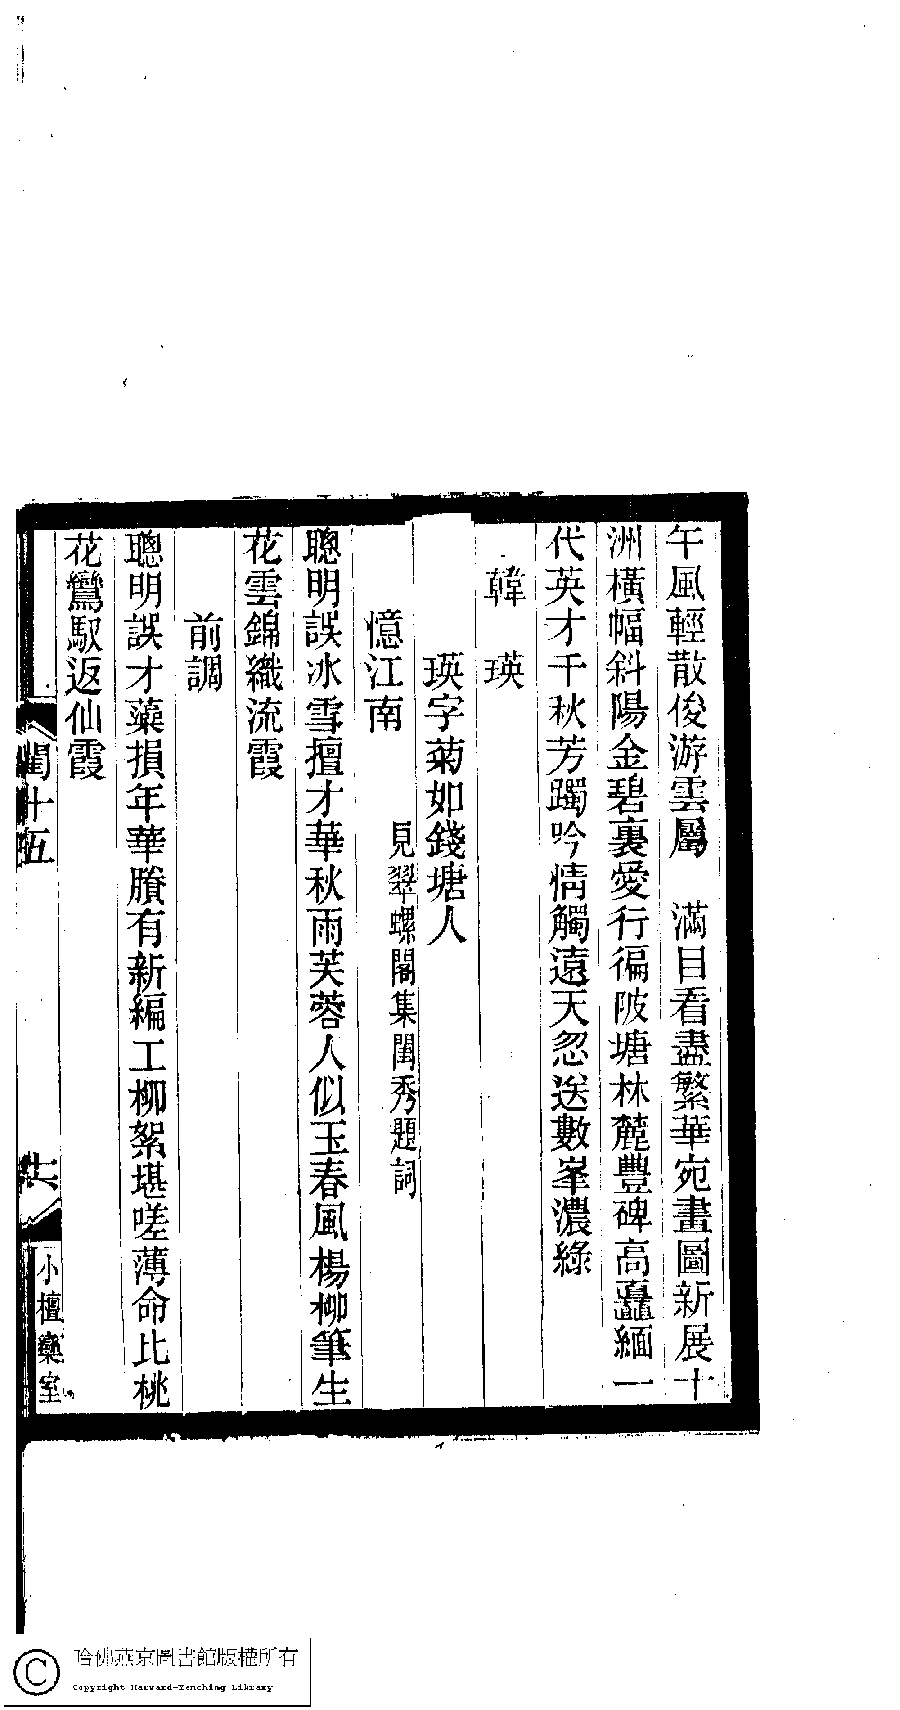 午風輕散俊游雲屬　滿目看盡繁華宛畫圖新展十
洲橫幅斜陽金碧裏愛行徧陂塘林麓豐碑高矗緬一
代英才千秋芳躅吟情觸遠天忽送數峯濃綠
韓　瑛
瑛字菊如錢塘人
憶江南　見翠螺閣集閨秀題詞
聰明誤冰雪擅才華秋雨芙蓉人似玉春風楊柳筆生
花雲錦織流霞
前調
聰明誤才藻損年華賸有新編工柳絮堪嗟薄命比桃
花鸞馭返仙霞
閨十五
小檀欒室
哈佛燕京圖書館版權所有
Copyright Harvard-Yenching Library